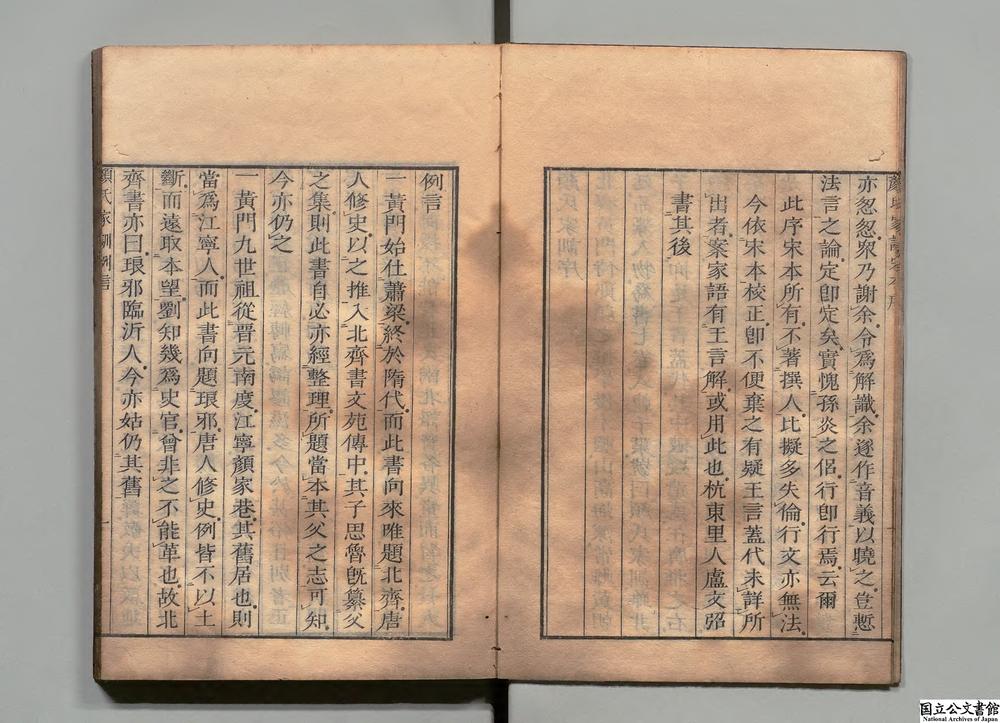 亦怱怱衆乃謝余令爲解識余遂作音義以曉之豈慙
法言之論定卽定矣實愧孫炎之侶行卽行焉云爾
此序宋本所有不著撰人比擬多失倫行文亦無法
今依宋本校正卽不便棄之有疑王言蓋代未詳所
出者案家語有王言解或用此也杭東里人盧文弨
書其後
例言
一黃門始仕蕭梁終於隋代而此書向來唯題北齊唐
人修史以之推入北齊書文苑傳中其子思魯旣纂父
之集則此書自必亦經整理所題當本其父之志可知
今亦仍之
一黃門九世祖從晋元南度江寧顏家巷其舊居也則
當爲江寧人而此書向題琅邪唐人修史例皆不以土
斷而遠取本望劉知幾爲史官曾非之不能革也故北
齊書亦曰琅邪臨沂人今亦姑仍其舊
顏氏家訓例言
国立公文書館
National Archives of Japan